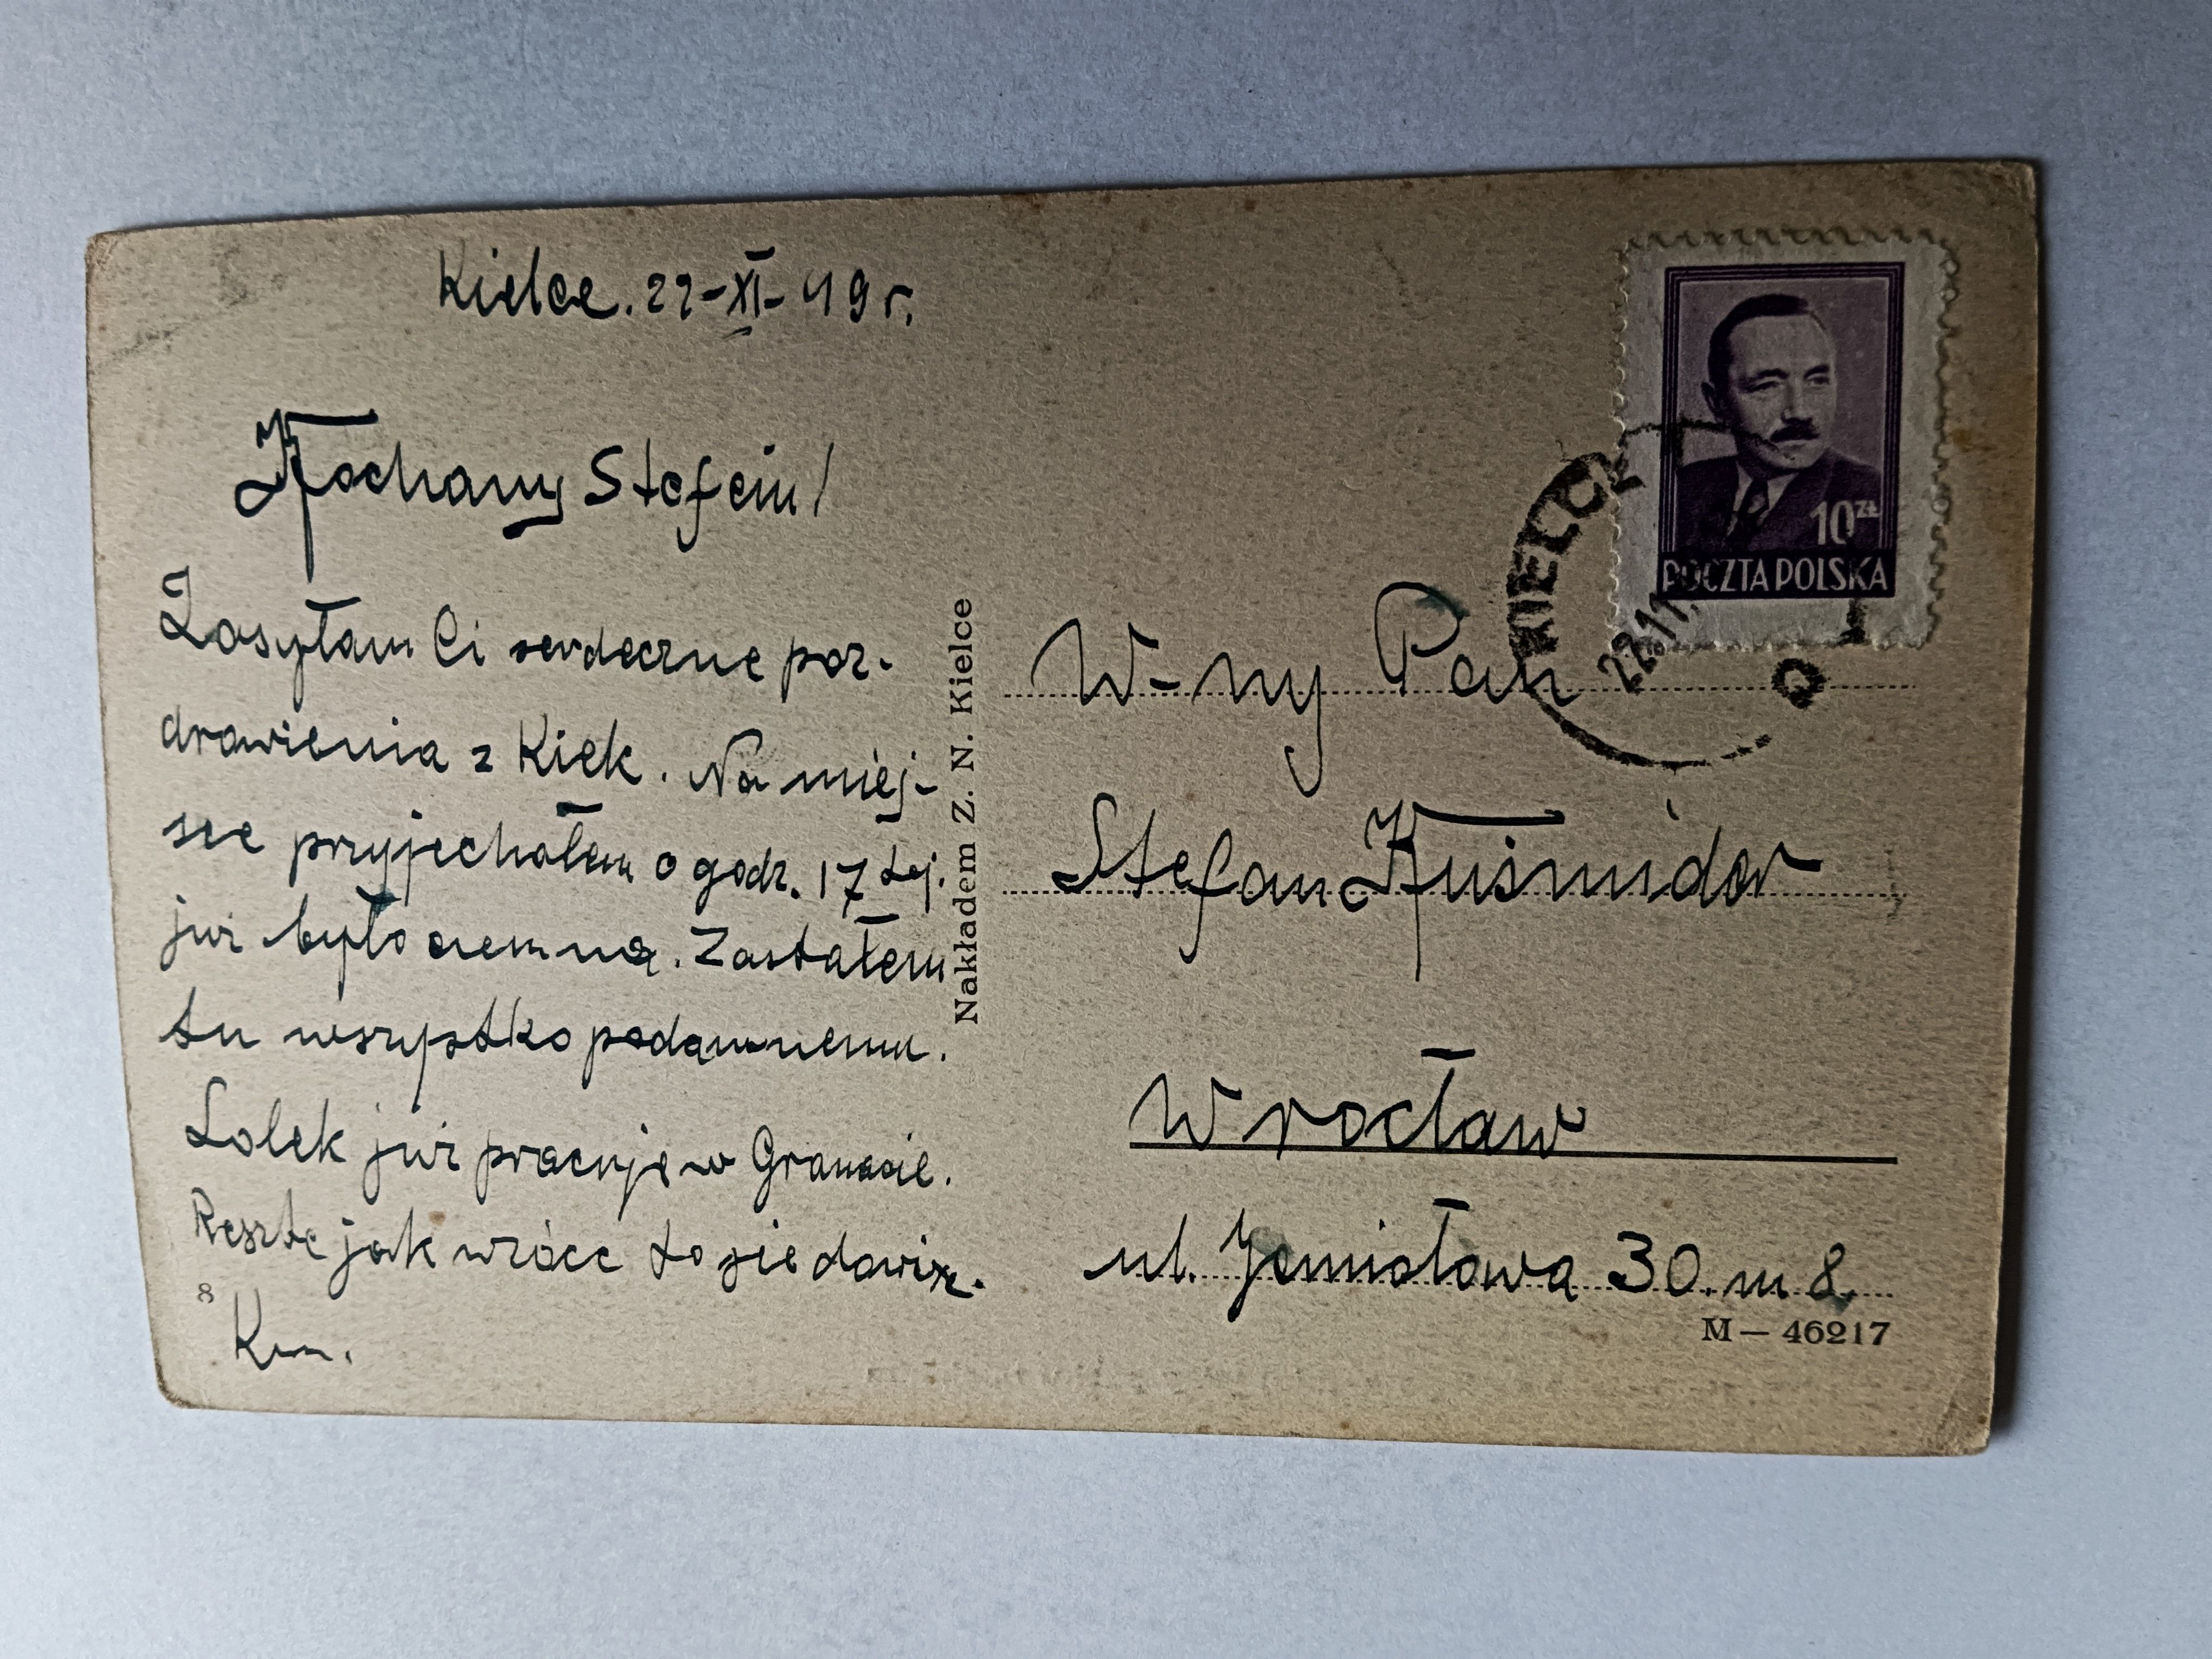 Kielce. 22-XI-49 r.
Kochany Stefciu!
Zasyłam Ci serdeczne poz-
drowienia z Kielc. Na miej-
sce przyjechałem o godz. 17 tej.
już było ciemno. Zastałem
tu wszystko podawnemu.
Lolek już pracuje w Granacie.
Resztę jak wrócę to się dowiesz.
8
Nakładem Z. N. Kielce
10 ZŁ
POCZTA POLSKA
KIELCE
22.11.
W-ny Pan
Stefan Kuśmider
Wrocław
ul. Jemiołowa 30. m 8
M — 46217